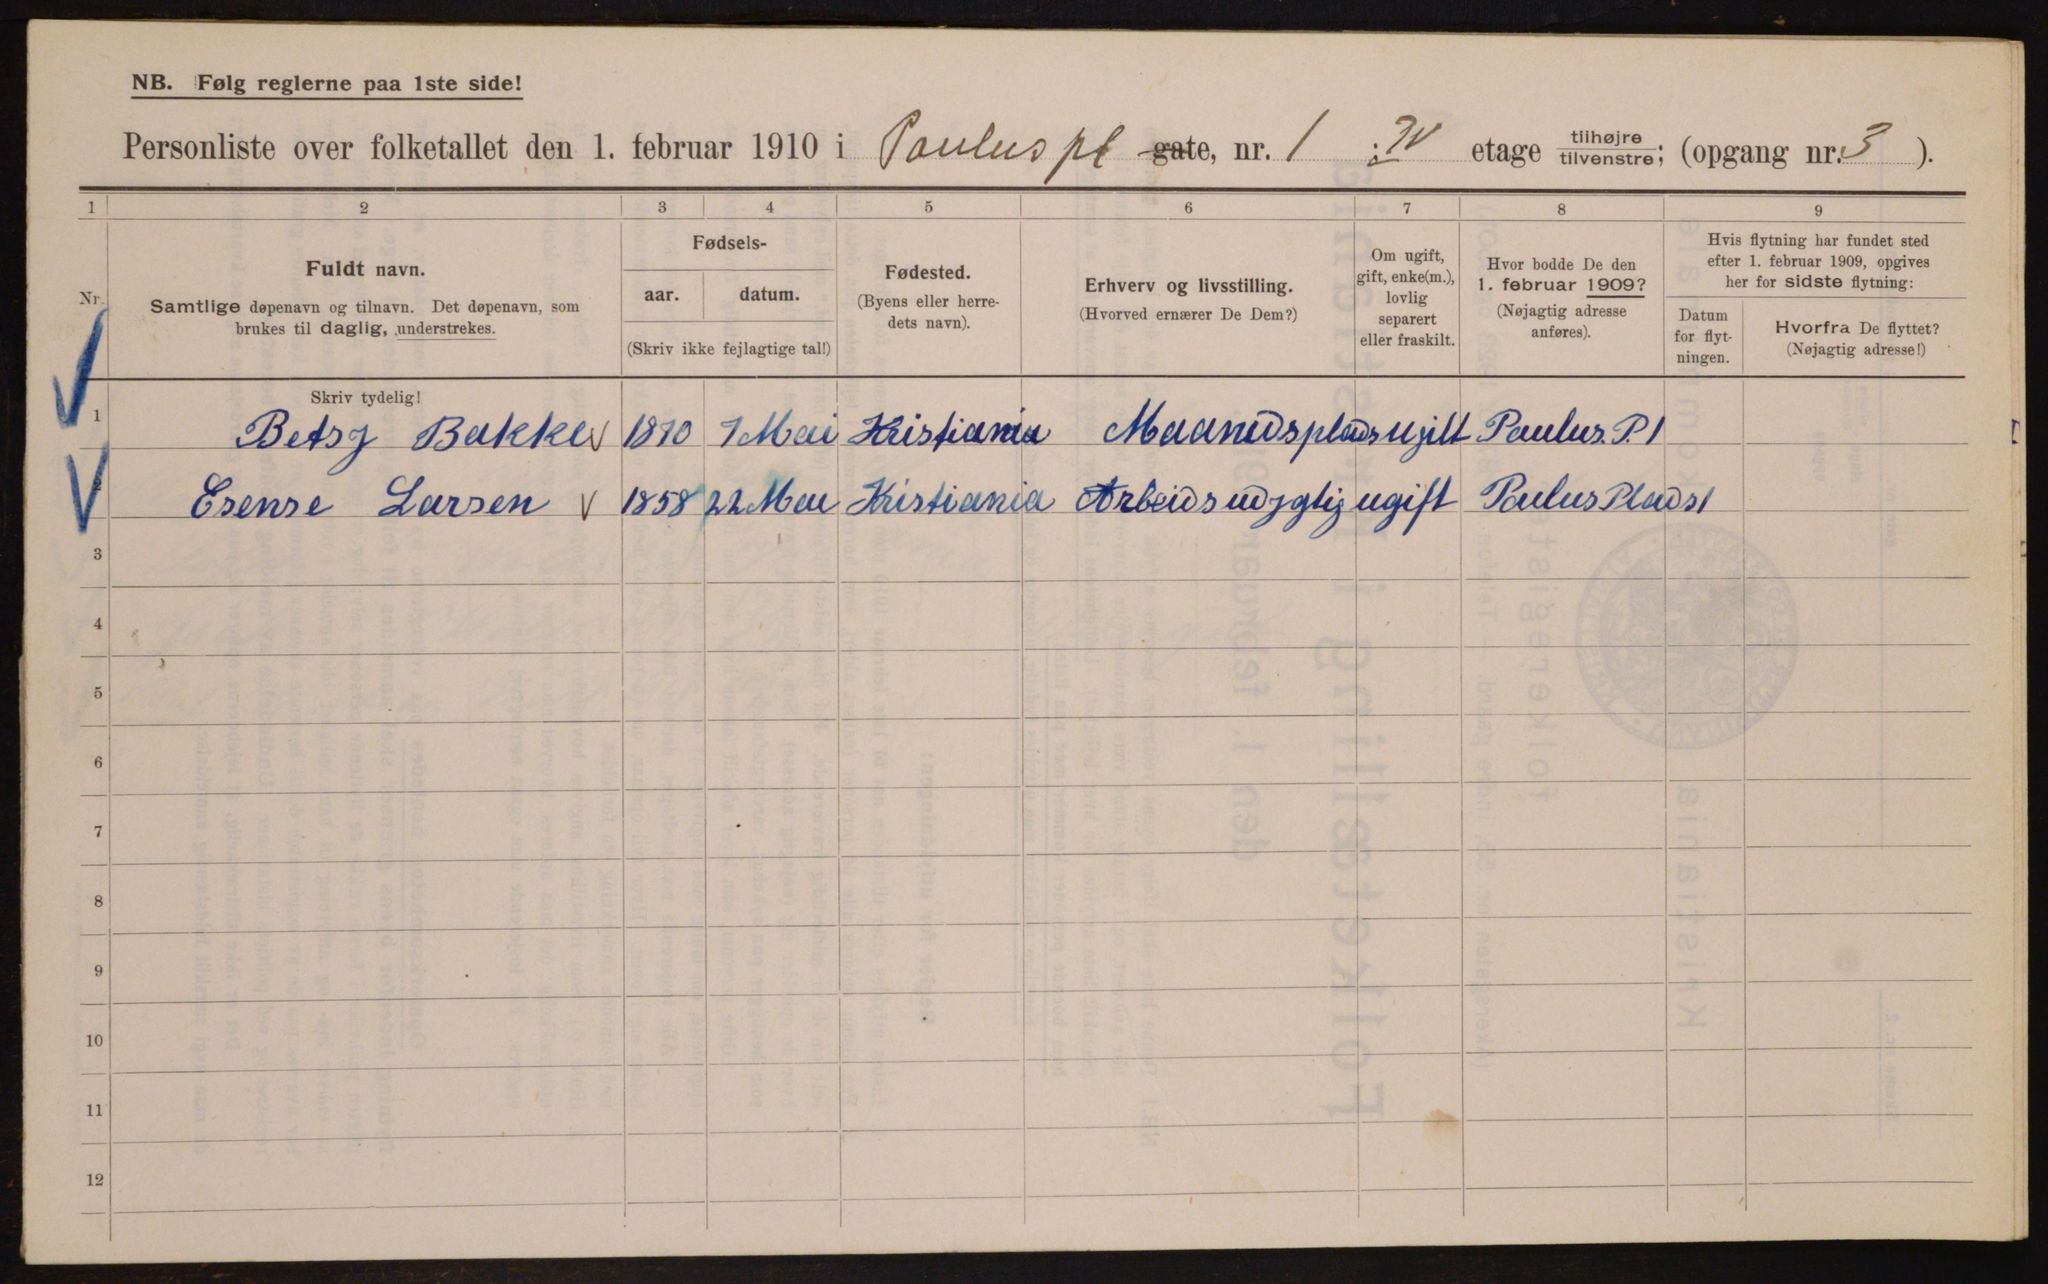 NB. Følg reglerne paa 1ste side!
Personliste over folketallet den 1. februar 1910 i Paulus pl gate, nr. 1 : IV etage tilhøjre/tilvenstre; (opgang nr. 3 ).
1 2 3 4 5 6 7 8 9
Nr.
Fuldt navn.
Samtlige døpenavn og tilnavn. Det døpenavn, som
brukes til daglig, understrekes.
Fødsels-
aar.
datum.
(Skriv ikke fejlagtige tal!)
Fødested.
(Byens eller herre-
dets navn).
Erhverv og livsstilling.
(Hvorved ernærer De Dem?)
Om ugift,
gift, enke(m.),
lovlig
separert
eller fraskilt.
Hvor bodde De den
1. februar 1909?
(Nøjagtig adresse
anføres).
Hvis flytning har fundet sted
efter 1. februar 1909, opgives
her for sidste flytning:
Datum
for flyt-
ningen.
Hvorfra De flyttet?
(Nøjagtig adresse!)
Skriv tydelig!
1 Betsy Bakke 1870 7 Mai Kristiania Maanedsplads ugift Paulus. P. 1
2 Esense Larsen 1858 22 Mai Kristiania Arbeidsudygtig ugift Paulus Plads 1
3
4
5
6
7
8
9
10
11
12